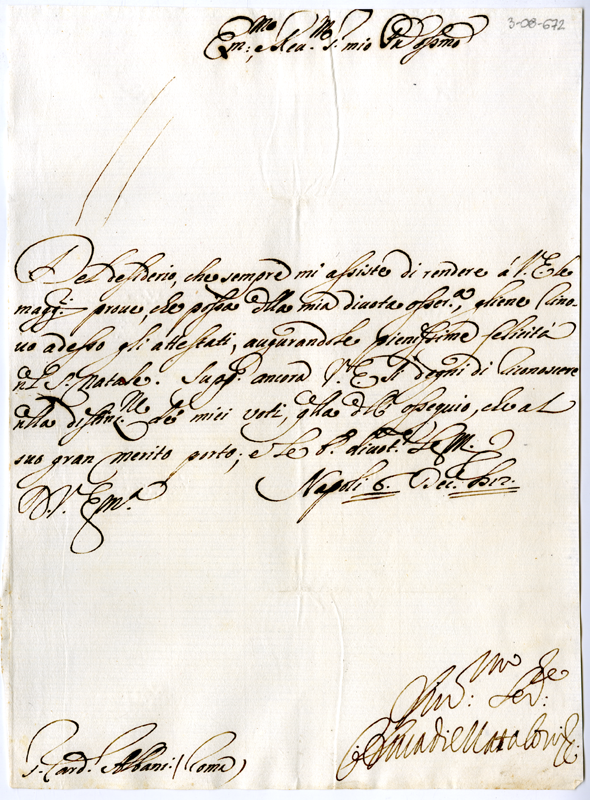 3-08-672
Em:mo, e Reu.mo S.r mio P.rn ossmo
Del desiderio, che sempre mi assiste di rendere à V. E. le
magg.ri prove, che possa della mia diuota osser.za, gliene rino-
uo adesso gli attestati, augurandole pienissime felicità
nel S.to Natale. Supp.co ancora V. E. si degni di riconoscere
nella distin.ne de miei voti, quella dell' ossequio, che al
suo gran merito porto; e le b.o diuot.te le M.
D. V. Em.a
Napoli 6. Dec.e 1712.
Diu:mo Ser:re
S. Card. Albani: (Roma)